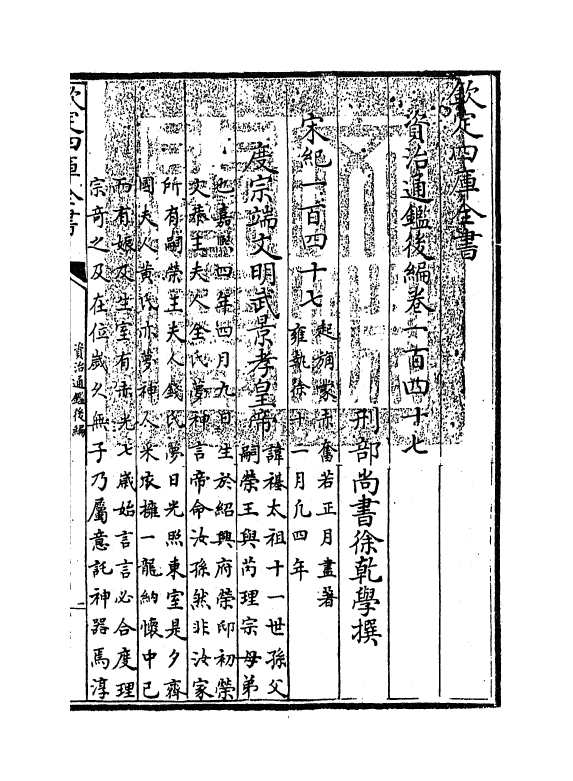 欽定四庫全書
資治通鑑後編卷一百四十七
刑部尚書徐乾學撰
宋紀一百四十七
起旃蒙赤奮若正月盡著
雍執徐十一月凡四年
度宗端文明武景孝皇帝
諱禥太祖十一世孫父
嗣榮王與芮理宗母弟
也嘉熙四年四月九日生於紹興府榮邸初榮
文恭王夫人全氏夢神言帝命汝孫然非汝家
所有嗣榮王夫人錢氏夢日光照東室是夕齊
國夫人黃氏亦夢神人采衣擁一龍納懷中已
而有娠及生室有赤光七歲始言言必合度理
宗奇之及在位歲久無子乃屬意託神器焉淳
欽定四庫全書
資治通鑑後編